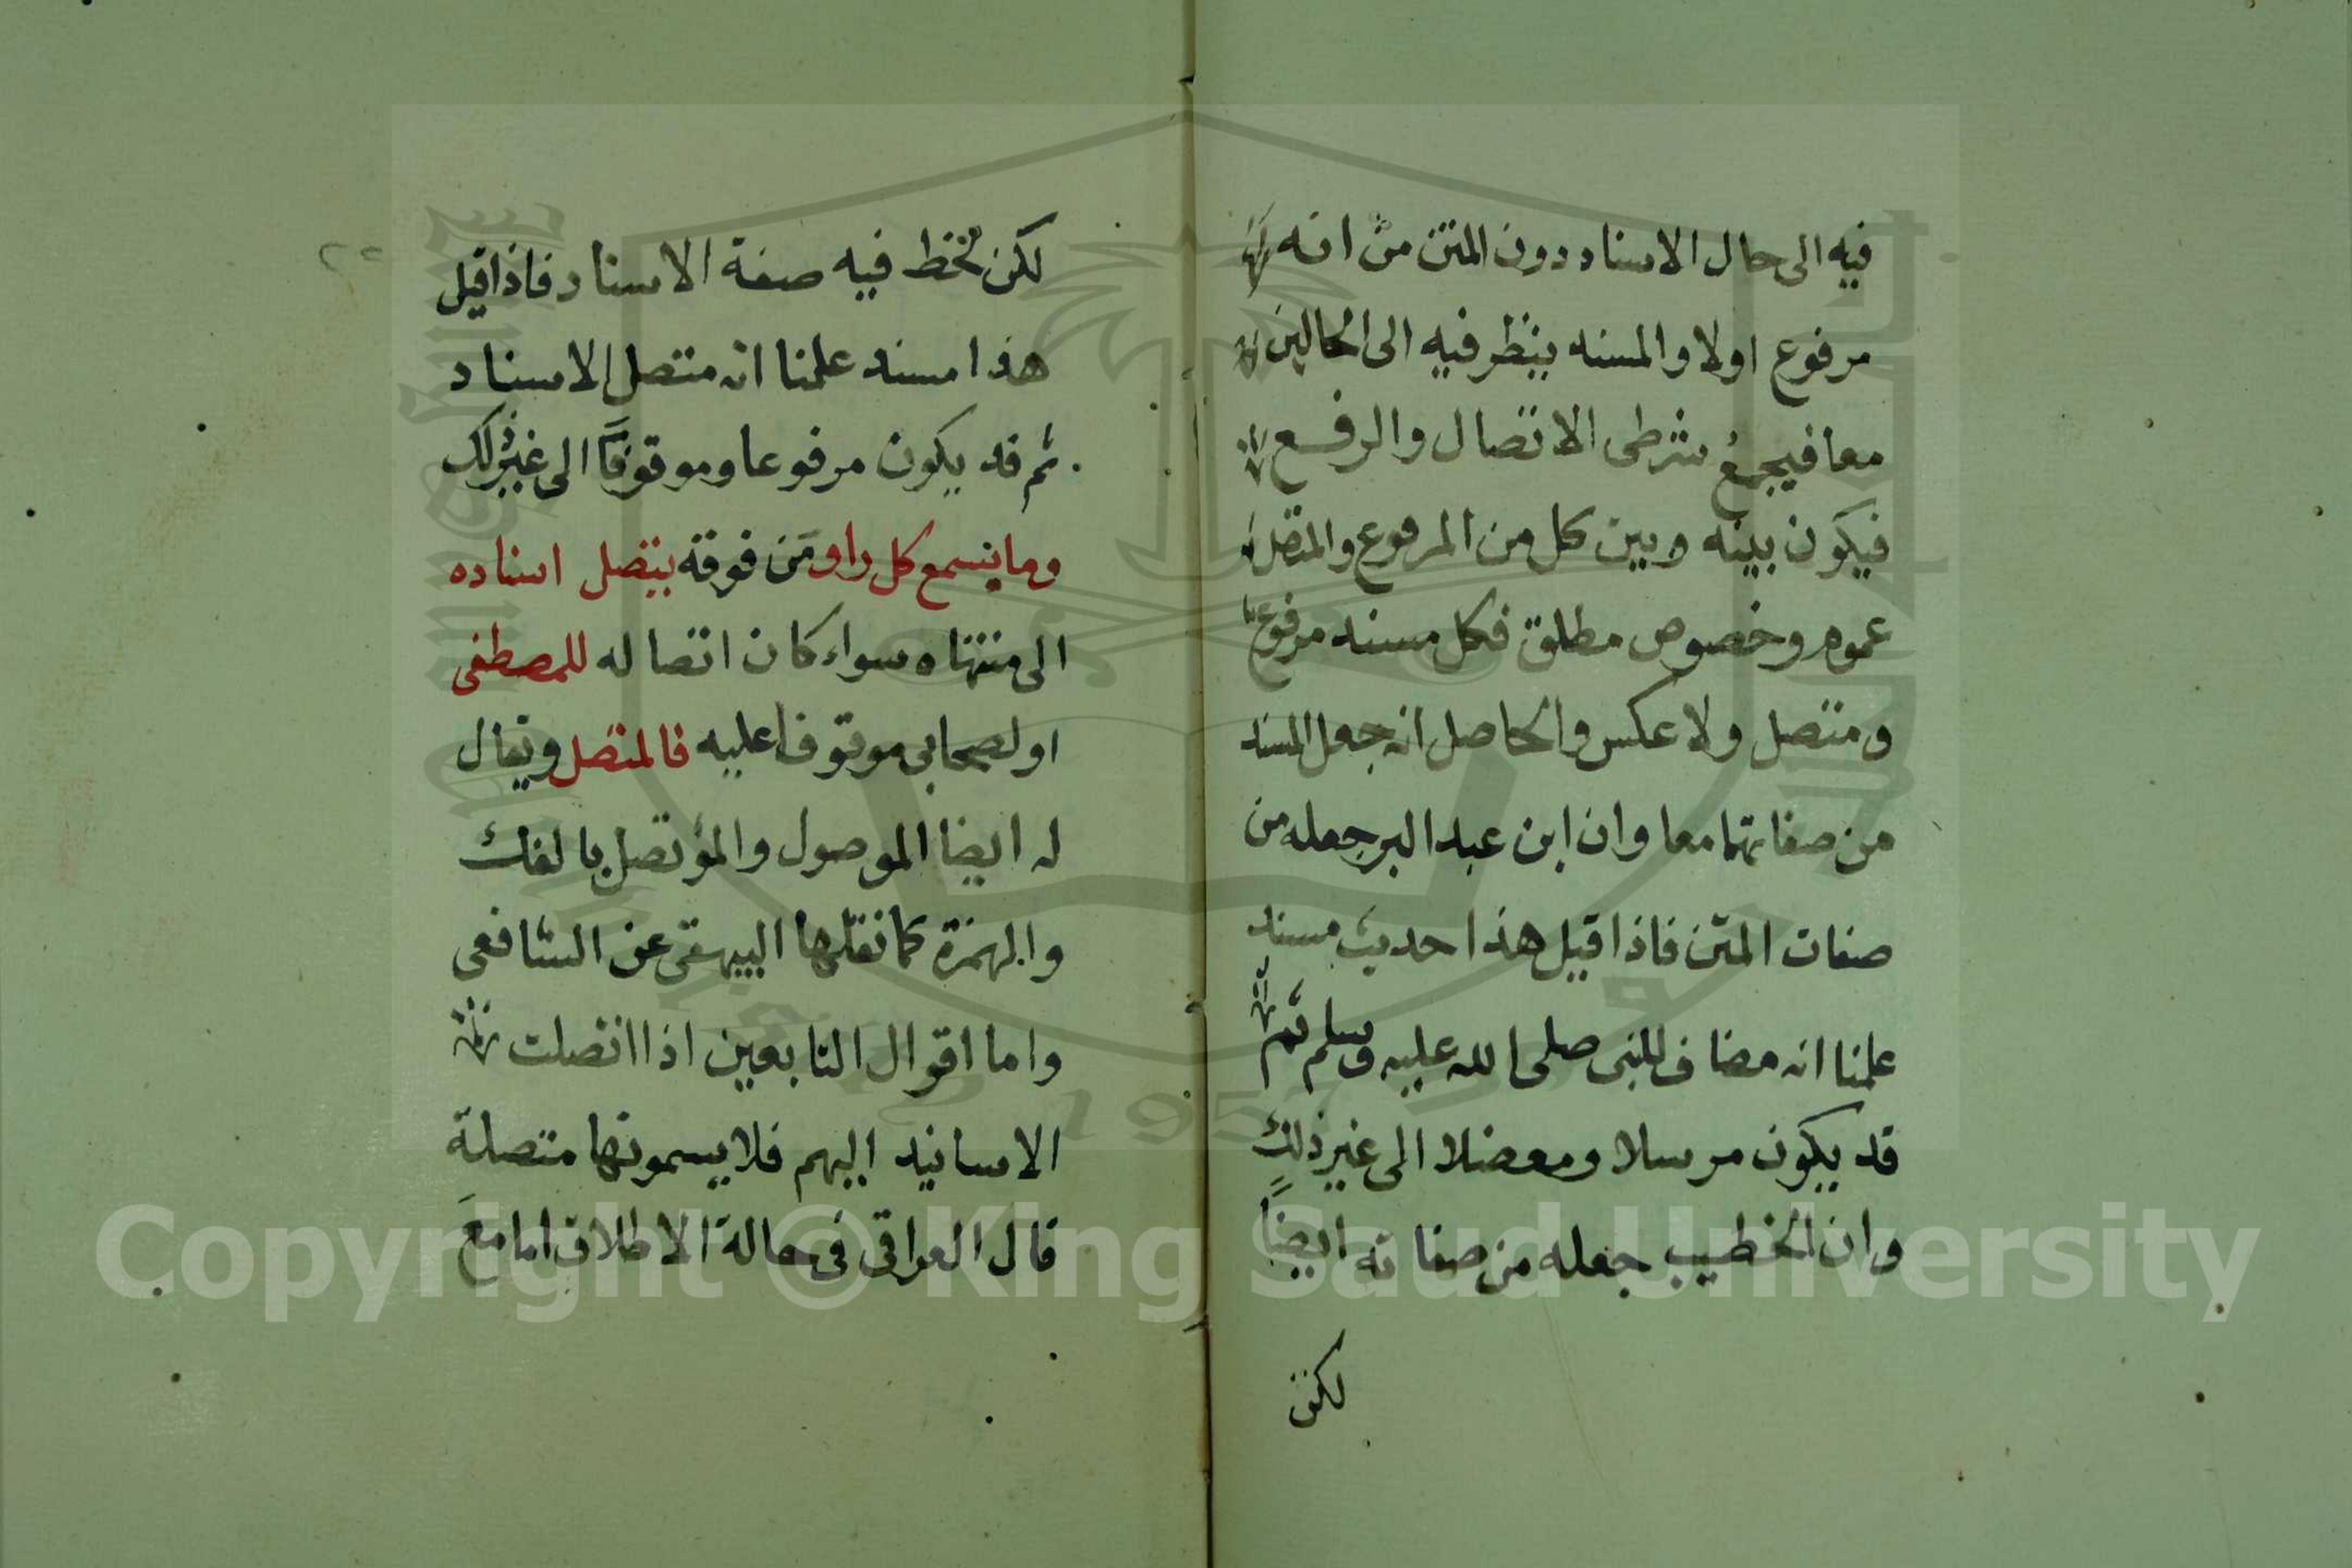 فيه الى حال الاسناد دون المتن من انه
مرفوع اولا والمسند ينظر فيه الى الحالين
معا فيجمع شرطى الاتصال والرفع
فيكون بينه وبين كل من المرفوع والمتصل
عموم وخصوص مطلق فكل مسند مرفوع
ومتصل ولا عكس والحاصل انه جعل المسند
من صفاتهما معا وان ابن عبد البر جعله من
صفات المتن فاذا قيل هذا حديث مسند
علمنا انه مضاف للنبى صلى الله عليه وسلم ثم
قد يكون مرسلا ومعضلا الى غير ذلك
وان الخطيب جعله من صفاته ايضًا
لكن
٢٢
لكن لحظ فيه صفة الاسناد فاذا قيل
هذا مسند علمنا انه متصل الاسناد
ثم قد يكون مرفوعا وموقوفًا الى غير ذلك
وما بسمع كل راو من فوقه يتصل اسناده
الى منتهاه سواء كان اتصاله للمصطفى
او لصحابى موقوفا عليه فالمتصل ويقال
له ايضا الموصول والمؤتصل بالفك
والهمزة كما نقلها البيهقى عن الشافعى
واما اقوال التابعين اذا اتصلت
الاسانيد اليهم فلا يسمونها متصلة
قال العراقى فى حالة الاطلاق اما مع
Copyright © King Saud University
1957